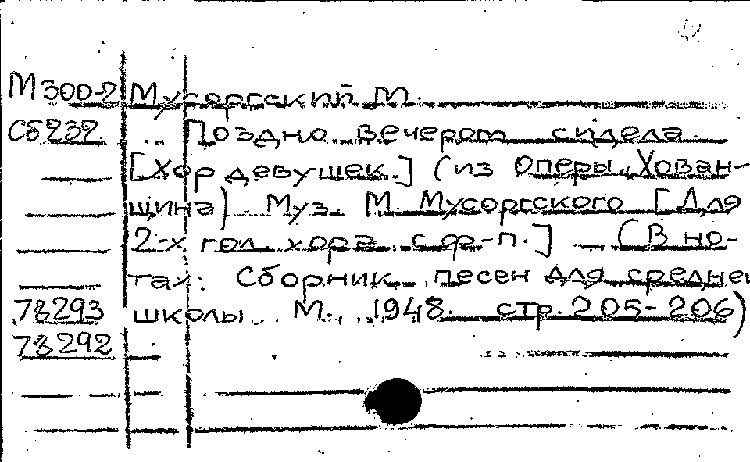 М300-2 Мусоргский М.
Сб232 Поздно вечером сидела.
[Хор девушек.] (из оперы „Хован-
щина) Муз. М. Мусоргского [Для
2-х гол. хора с ф-п.] — (В но-
тах: Сборник песен для средней
78293 школы. М., 1948. стр. 205-206)
78292